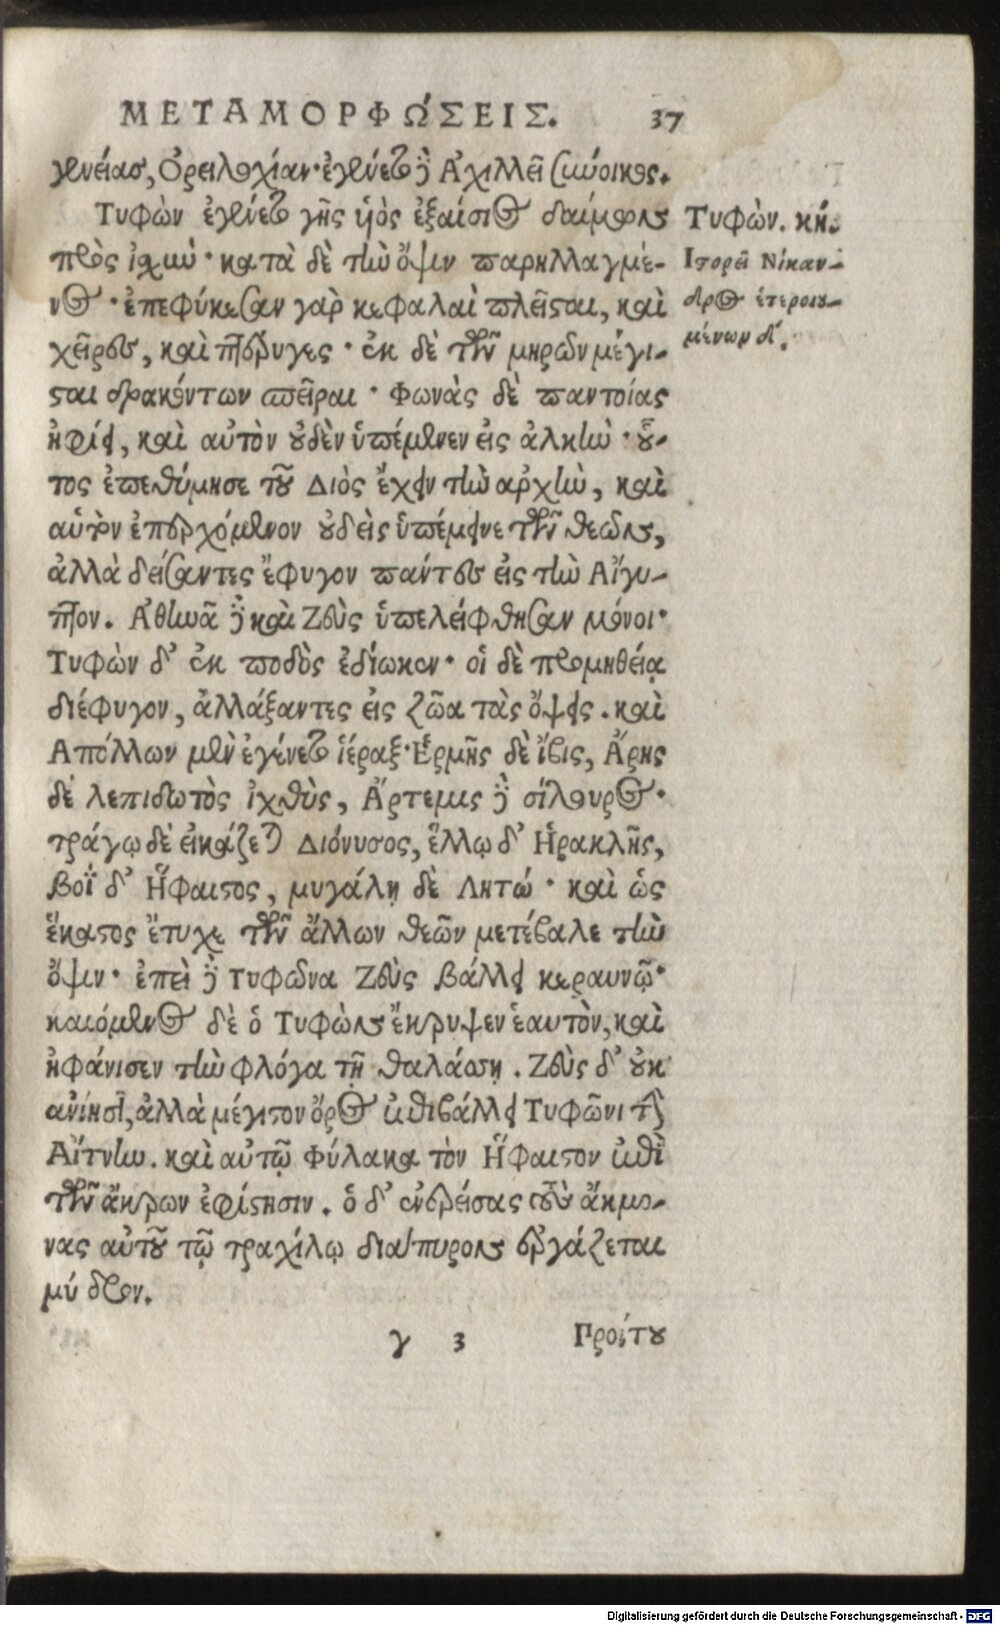 ΜΕΤΑΜΟΡΦΏΣΕΙΣ. 37
γενείας, Ὀρσιλοχίαν· ἐγένετο δὲ Ἀχιλλεῖ σύνοικος.
Τυφὼν ἐγένετο γῆς ὑὸς ἐξαίσιος δαίμων
πρὸς ἰσχύν· κατὰ δὲ τὴν ὄψιν παρηλλαγμέ-
νος· ἐπεφύκεσαν γὰρ κεφαλαὶ πλεῖσται, καὶ
χεῖρες, καὶ πτέρυγες· ἐκ δὲ τῶν μηρῶν μέγι-
σται δρακόντων σπεῖραι· φωνὰς δὲ παντοίας
ἠφίει, καὶ αὐτὸν οὐδὲν ὑπέμενεν εἰς ἀλκήν· οὗ-
τος ἐπεθύμησε τοῦ Διὸς ἔχειν τὴν ἀρχὴν, καὶ
αὐτὸν ἐπερχόμενον οὐδεὶς ὑπέμεινε τῶν θεῶν,
ἀλλὰ δείσαντες ἔφυγον πάντες εἰς τὴν Αἴγυ-
πτον. Ἀθηνᾶ δὲ καὶ Ζεὺς ὑπελείφθησαν μόνοι·
Τυφὼν δ' ἐκ ποδὸς ἐδίωκεν· οἱ δὲ προμηθείᾳ
διέφυγον, ἀλλάξαντες εἰς ζῶα τὰς ὄψεις. καὶ
Ἀπόλλων μὲν ἐγένετο ἱέραξ· Ἑρμῆς δὲ ἴβις, Ἄρης
δὲ λεπιδωτὸς ἰχθὺς, Ἄρτεμις δὲ αἴλουρος·
τράγῳ δὲ εἰκάζεται Διόνυσος, ἔλλῳ δ' Ἡρακλῆς,
βοῒ δ' Ἥφαιστος, μυγάλη δὲ Λητώ· καὶ ὡς
ἕκαστος ἔτυχε τῶν ἄλλων θεῶν μετέβαλε τὴν
ὄψιν· ἐπεὶ δὲ Τυφῶνα Ζεὺς βάλλει κεραυνῷ·
καιόμενος δὲ ὁ Τυφὼν ἔκρυψεν ἑαυτὸν, καὶ
ἠφάνισεν τὴν φλόγα τῇ θαλάσσῃ. Ζεὺς δ' οὐκ
ἀνίησι, ἀλλὰ μέγιστον ὄρος ἐπιβάλλει Τυφῶνι τὴν
Αἴτνην. καὶ αὐτῷ φύλακα τὸν Ἥφαιστον ἐπὶ
τῶν ἄκρων ἐφίστησιν. ὁ δ' ἐνερείσας τοὺς ἄκμο-
νας αὐτοῦ τῷ τραχήλῳ διαπύρους ἐργάζεται
μύδρον.
γ 3 Προίτου
Τυφών. κη.
Ἱστορεῖ Νίκαν-
δρος ἑτεροιου-
μένων δ'.
Digitalisierung gefördert durch die Deutsche Forschungsgemeinschaft - DFG